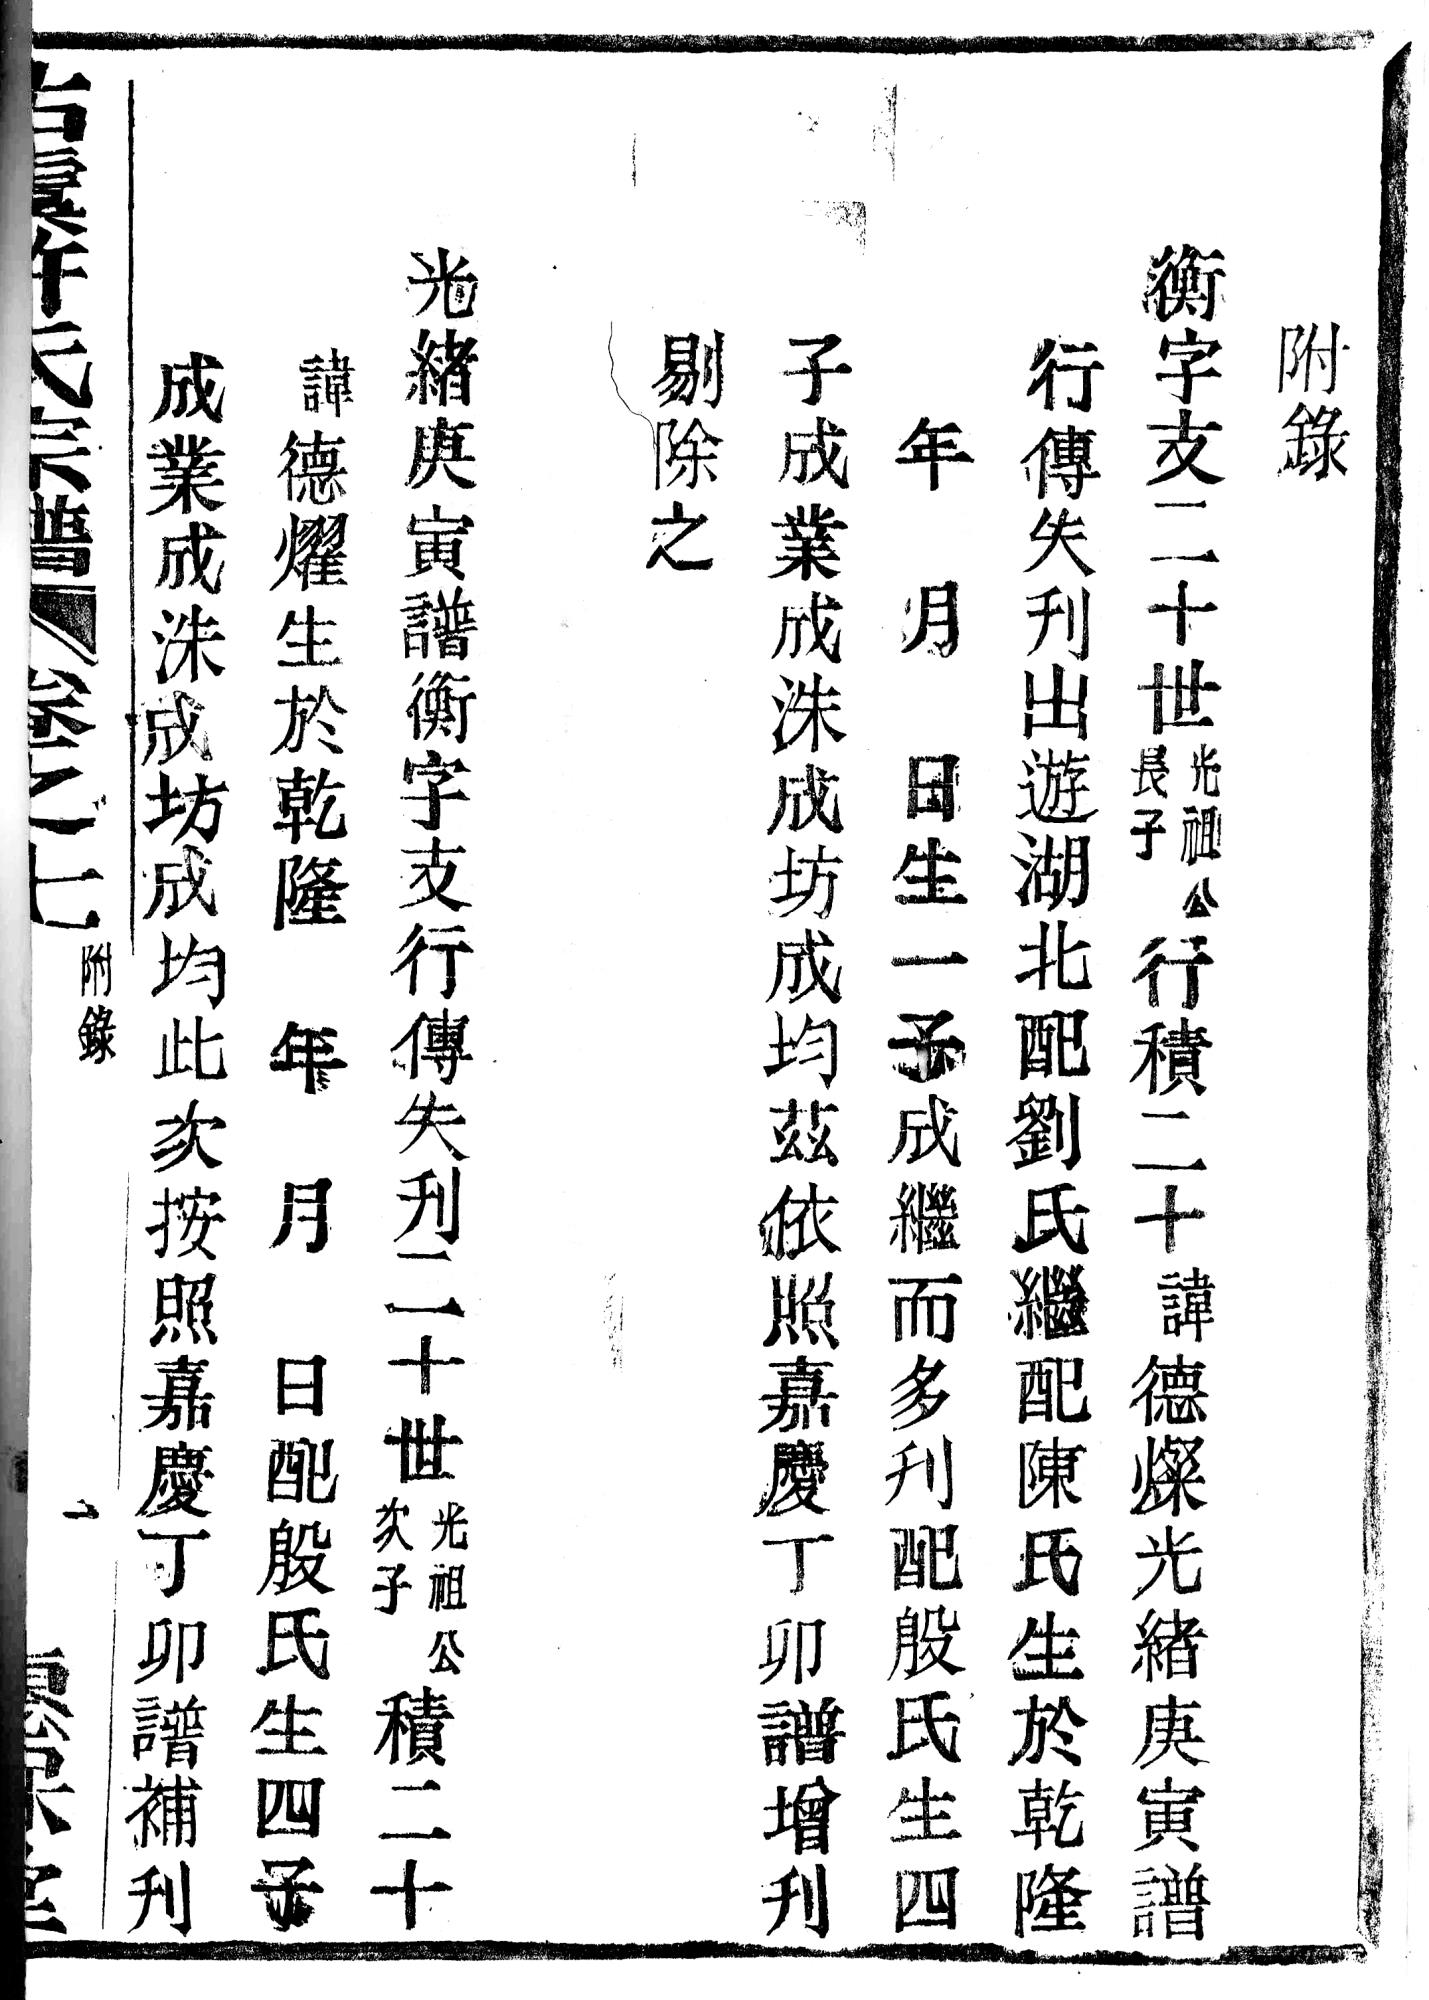 附錄
衡字支二十世光祖公長子行積二十諱德燦光緒庚寅譜
行傳失刋出遊湖北配劉氏繼配陳氏生於乾隆
年　月　日生一子成繼而多刋配殷氏生四
子成業成洙成坊成均茲依照嘉慶丁卯譜增刋
剔除之
光緒庚寅譜衡字支行傳失刋二十世光祖公次子積二十
諱德燿生於乾隆　年　月　日配殷氏生四子
成業成洙成坊成均此次按照嘉慶丁卯譜補刋
古虞許氏宗譜 卷之七 附錄 一